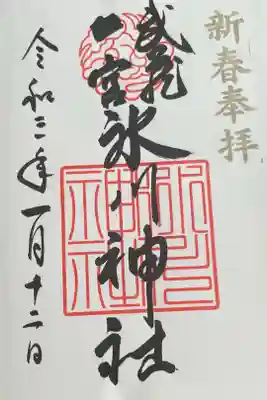 新春奉拝
武蔵
一宮
氷川神社
令和三年一月十二日